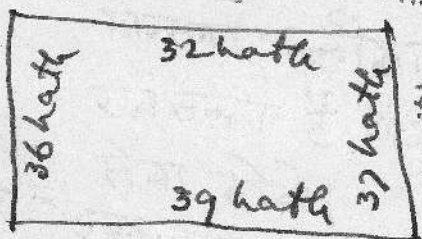 32 hath
36 hath
37 hath
39 hath